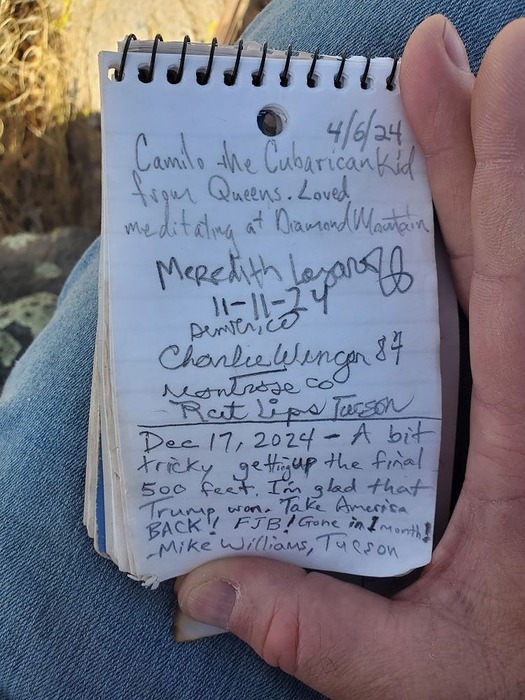 4/6/24
Camilo the Cubarican Kid
from Queens. Loved
meditating at Diamond Mountain
Meredith
11-11-24
Denver, CO
Charlie Winger 87
Montrose CO
Rat Lips Tucson
Dec 17, 2024 - A bit
tricky getting up the final
500 feet. I'm glad that
Trump won. Take America
BACK! FJB! Gone in 1 month!
-Mike Williams, Tucson